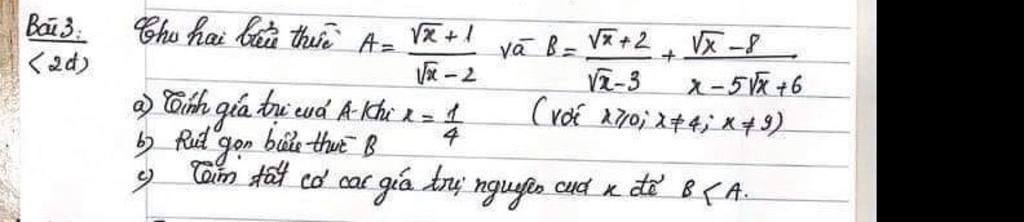 Bài 3: Cho hai biểu thức A = (√x + 1)/(√x - 2) và B = (√x + 2)/(√x - 3) + (√x - 8)/(x - 5√x + 6)
(2đ)
a) Tính giá trị cuả A khi x = 1/4 (với x ≥ 0; x ≠ 4; x ≠ 9)
b) Rút gọn biểu thức B
c) Tìm tất cả các giá trị nguyên cuả x để B < A.